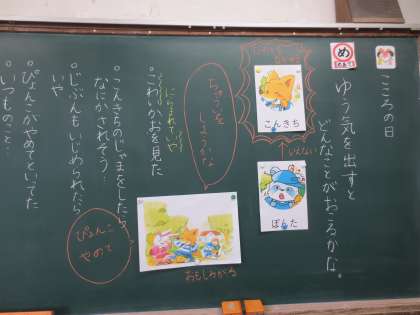 こころの日
め
ゆう気を出すと
どんなことがおこるかな。
こんきち
いえない
ぽんた
ちゅういを
しようかな
おもしろがる
にらまれていや
・こわいかおを見た
・こんきちのじゃまをしたら
なにかされそう…
・じぶんもいじめられたら
いや
・ぴょんこがやめてといってた
・いつものこと…
ぴょんこ
やめて